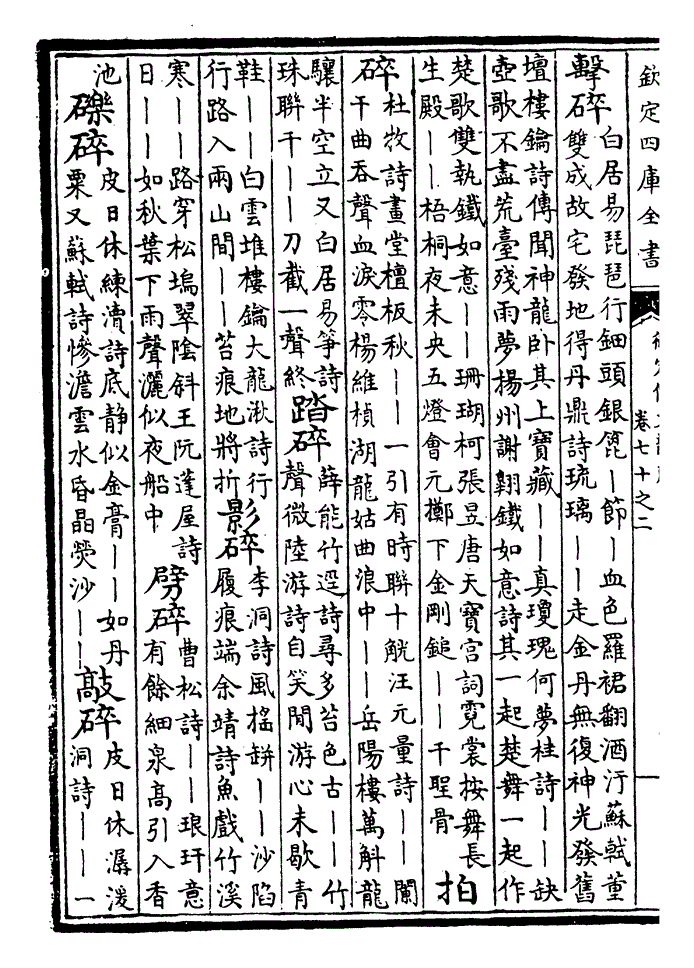 欽定四庫全書
卷七十之二
擊碎
白居易琵琶行鈿頭銀箆丨節丨血色羅裙翻酒汙蘇軾董
雙成故宅發地得丹鼎詩琉璃丨丨走金丹無復神光發舊
壇樓鑰詩傳聞神龍卧其上寶藏丨丨真瓊瑰何夢桂詩丨丨缺
壺歌不盡荒臺殘雨夢揚州謝翱鐵如意詩其一起楚舞一起作
楚歌雙執鐵如意丨丨珊瑚柯張昱唐天寶宫詞霓裳按舞長
生殿丨丨梧桐夜未央五燈會元擲下金剛鎚丨丨千聖骨
拍碎
杜牧詩畫堂檀板秋丨丨一引有時聯十觥汪元量詩丨丨闌
干曲吞聲血淚零楊維楨湖龍姑曲浪中丨丨岳陽樓萬斛龍
驤半空立又白居易箏詩
珠聯千丨丨刀截一聲終
踏碎
薛能竹逕詩尋多苔色古丨丨竹
聲微陸游詩自笑閒游心未歇青
鞋丨丨白雲堆樓鑰大龍湫詩行
行路入兩山間丨丨苔痕地將折
影碎
李洞詩風摇缾丨丨沙陷
履痕端余靖詩魚戲竹溪
寒丨丨路穿松塢翠陰斜王阮蓬屋詩
日丨丨如秋葉下雨聲灑似夜船中
劈碎
曹松詩丨丨琅玕意
有餘細泉高引入香
池
礫碎
皮日休練瀆詩底静似金膏丨丨如丹
粟又蘇軾詩慘澹雲水昏晶熒沙丨丨
敲碎
皮日休潺湲
洞詩丨丨一